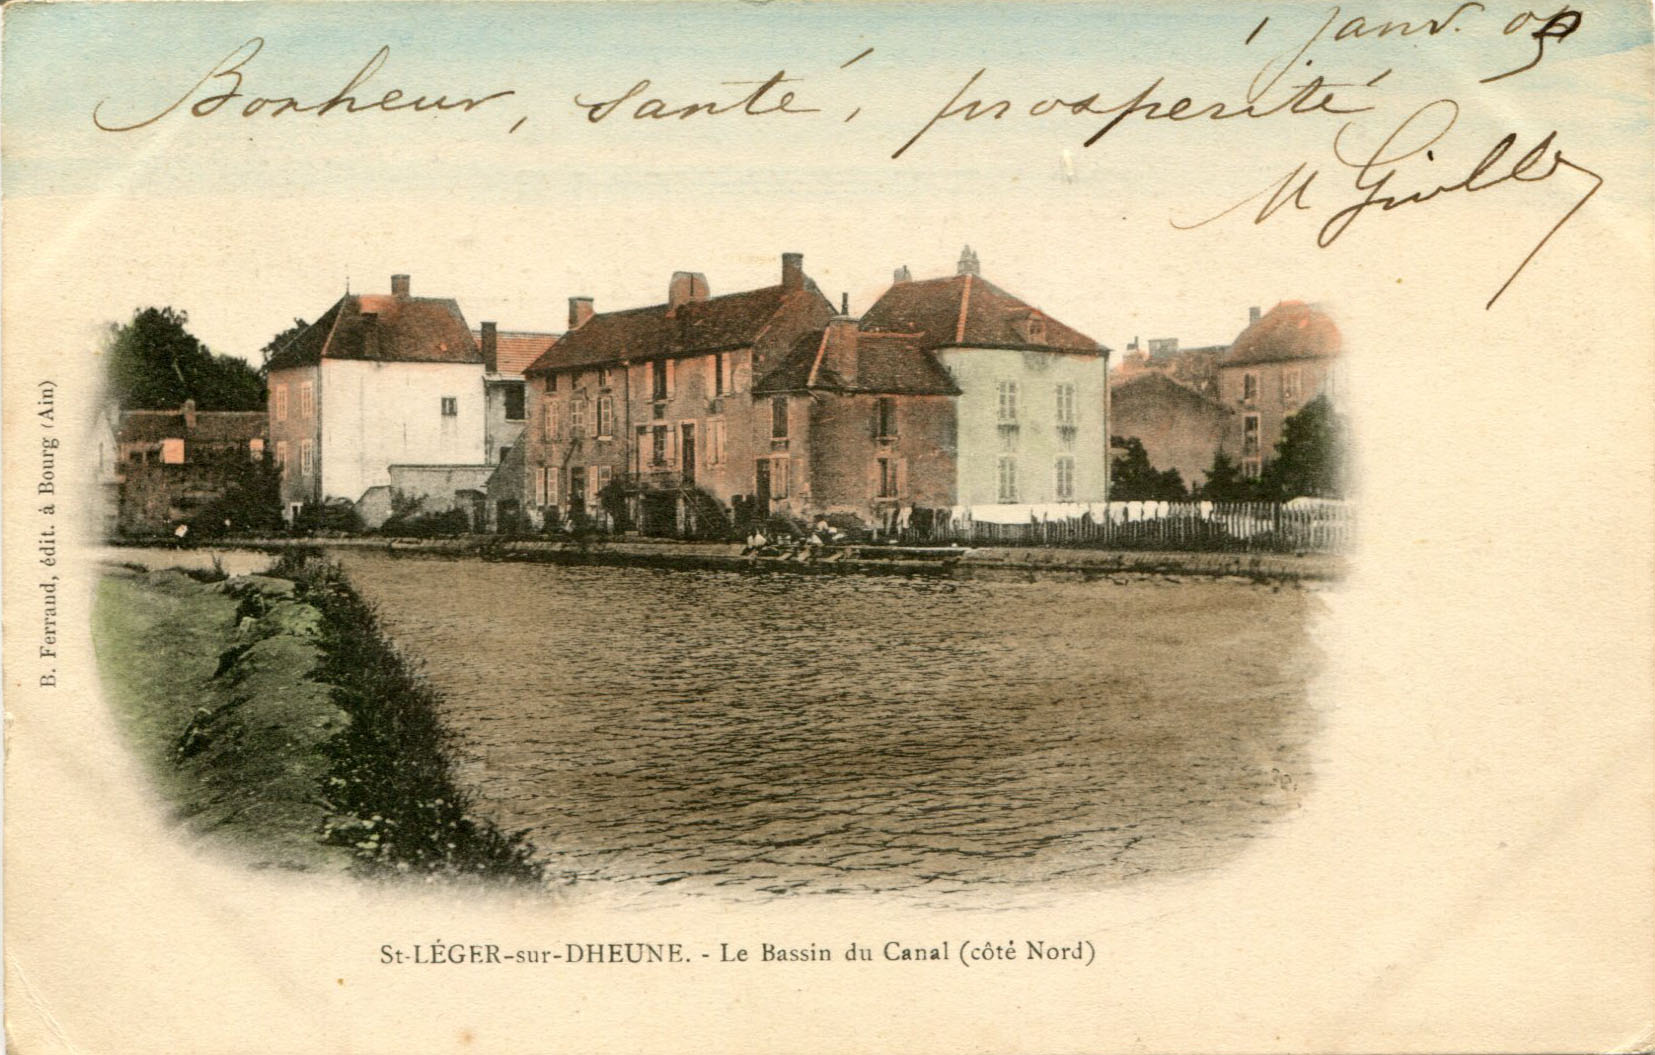 1 janv. 05
Bonheur, santé, prospérité
M
B. Ferrand, édit. à Bourg (Ain)
St-LÉGER-sur-DHEUNE. - Le Bassin du Canal (côté Nord)